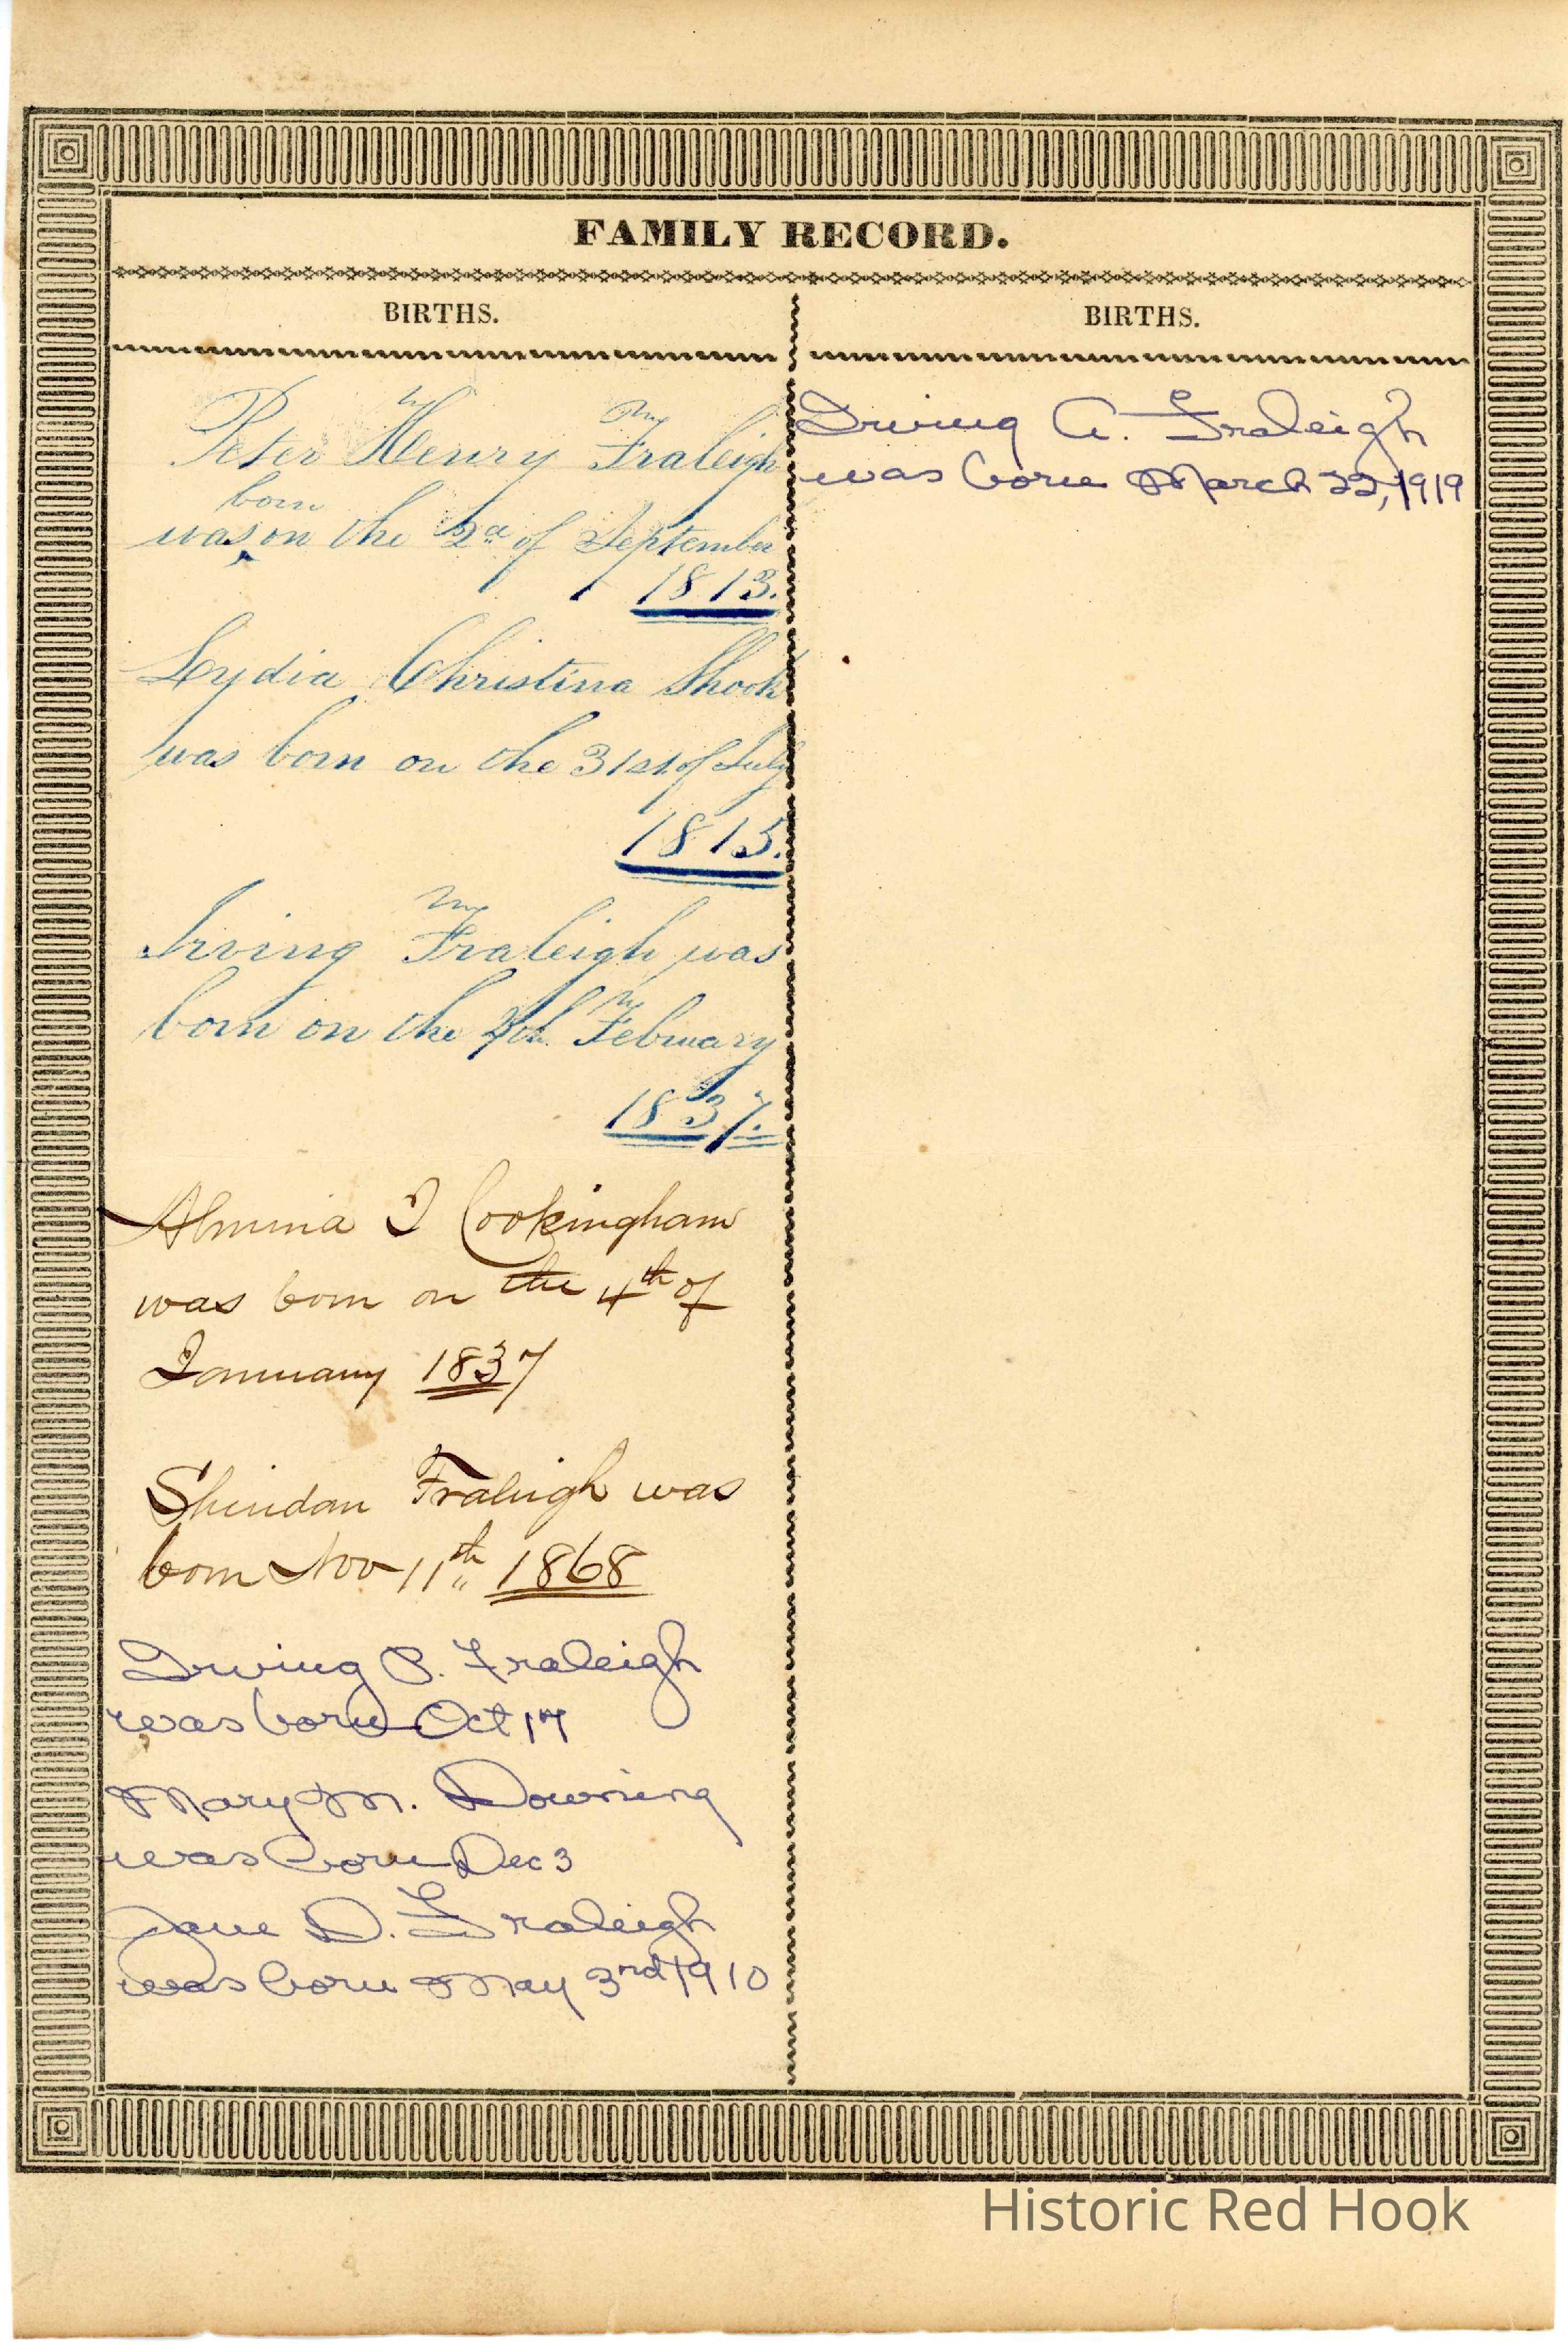 FAMILY RECORD.
BIRTHS.
Peter Henry Fraleigh
born
was on the 2d of September
1813.
Lydia Christina Shook
was born on the 31st. of July
1815.
Irving Fraleigh was
born on the February
1837.
Almina J Cookingham
was born on the 4th of
January 1837
Sheridan Fraleigh was
born Nov 11th 1868
Irving P. Fraleigh
was born Oct 17
Mary M. Downing
was born Dec 3
Jane D. Fraleigh
was born May 3rd 1910
BIRTHS.
Irving A. Fraleigh
was born March 22, 1919
Historic Red Hook